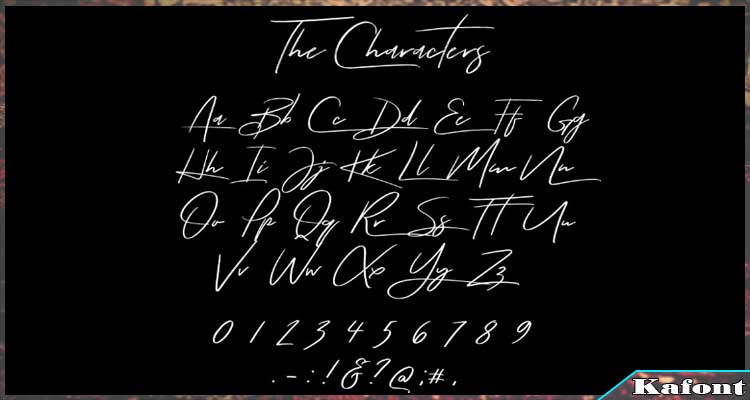 The Characters
Aa Bb Cc Dd Ee Ff Gg
Hh Ii Jj Kk Ll Mm Nn
Oo Pp Qq Rr Ss Tt Uu
Vv Ww Xx Yy Zz
0 1 2 3 4 5 6 7 8 9
. - : ! & ? @ ; # ,
Kafont